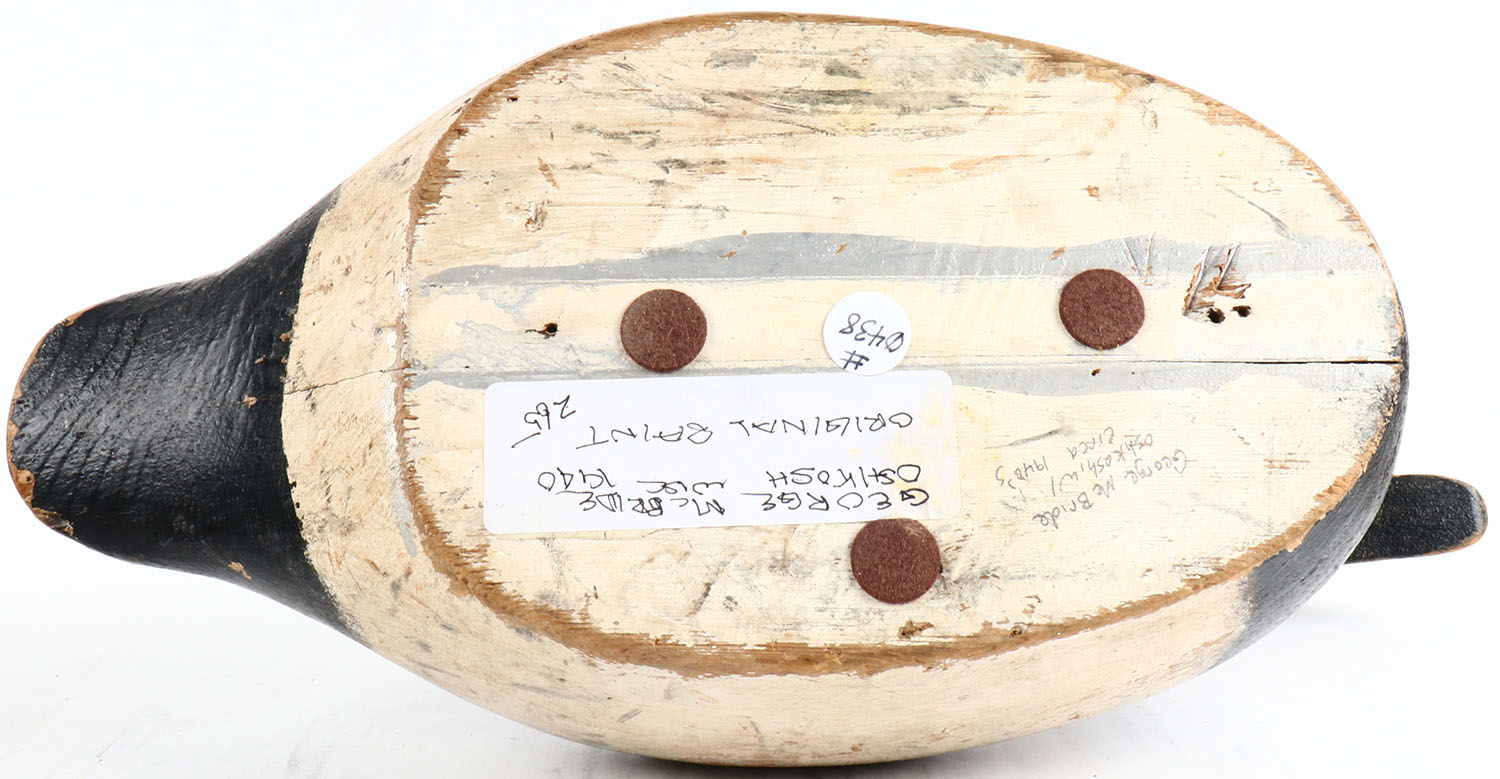 GEORGE McBRIDE
OSHKOSH WISC 1940
ORIGINAL PAINT
265
# Ø438
George McBride
Oshkosh, WI
circa 1940's